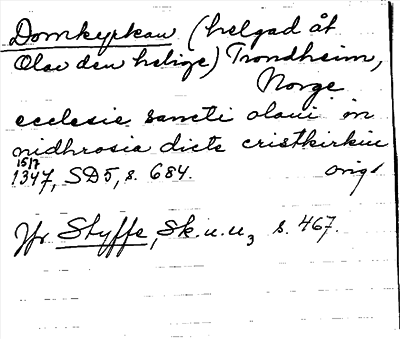 Domkyrkan (helgad åt
Olav den helige) Trondheim,
Norge
ecclesie sancti olaui in
nidhrosia dicte cristkirkiu
15/7
1347, SD5, s. 684. orig.
Jfr Styffe, Sk.u.u, s. 467.